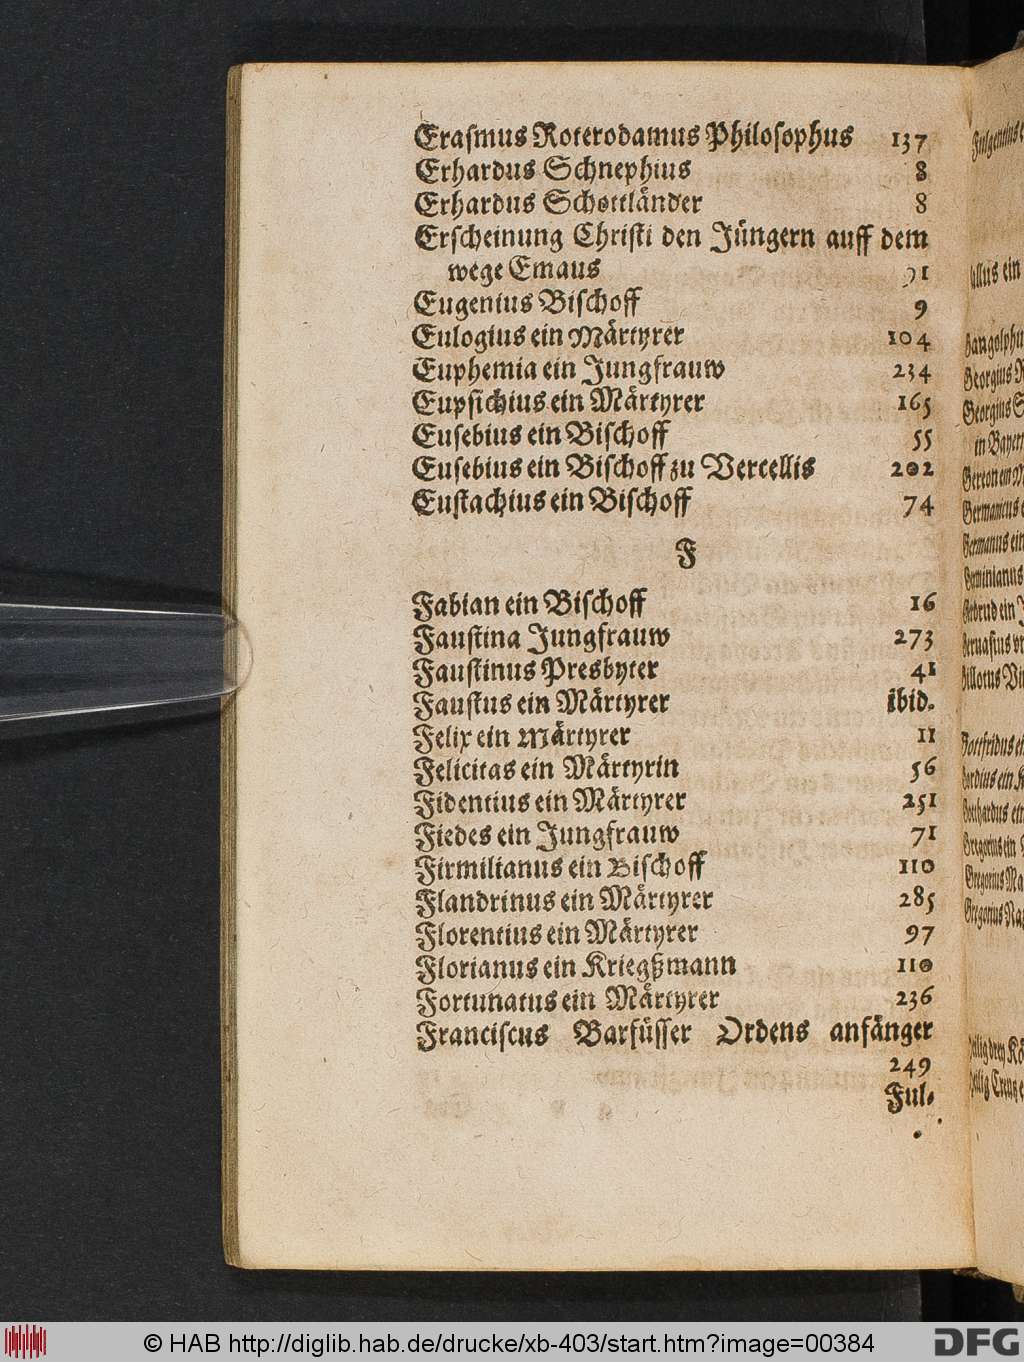 Erasmus Roterodamus Philosophus 137
Erhardus Schnephius 8
Erhardus Schottländer 8
Erscheinung Christi den Jüngern auff dem
wege Emaus 91
Eugenius Bischoff 9
Eulogius ein Märtyrer 104
Euphemia ein Jungfrauw 234
Eupsichius ein Märtyrer 165
Eusebius ein Bischoff 55
Eusebius ein Bischoff zu Vercellis 202
Eustachius ein Bischoff 74
F
Fabian ein Bischoff 16
Faustina Jungfrauw 273
Faustinus Presbyter 41
Faustus ein Märtyrer ibid.
Felix ein Märtyrer 11
Felicitas ein Märtyrin 56
Fidentius ein Märtyrer 251
Fiedes ein Jungfrauw 71
Firmilianus ein Bischoff 110
Flandrinus ein Märtyrer 285
Florentius ein Märtyrer 97
Florianus ein Kriegßmann 110
Fortunatus ein Märtyrer 236
Franciscus Barfüsser Ordens anfänger
249
Ful-
© HAB http://diglib.hab.de/drucke/xb-403/start.htm?image=00384
DFG